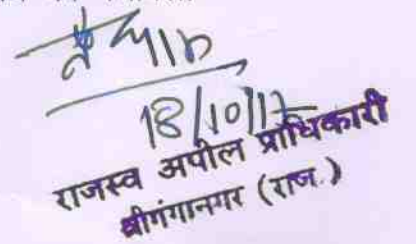 18/10/17
राजस्व अपील प्राधिकारी
श्रीगंगानगर (राज.)